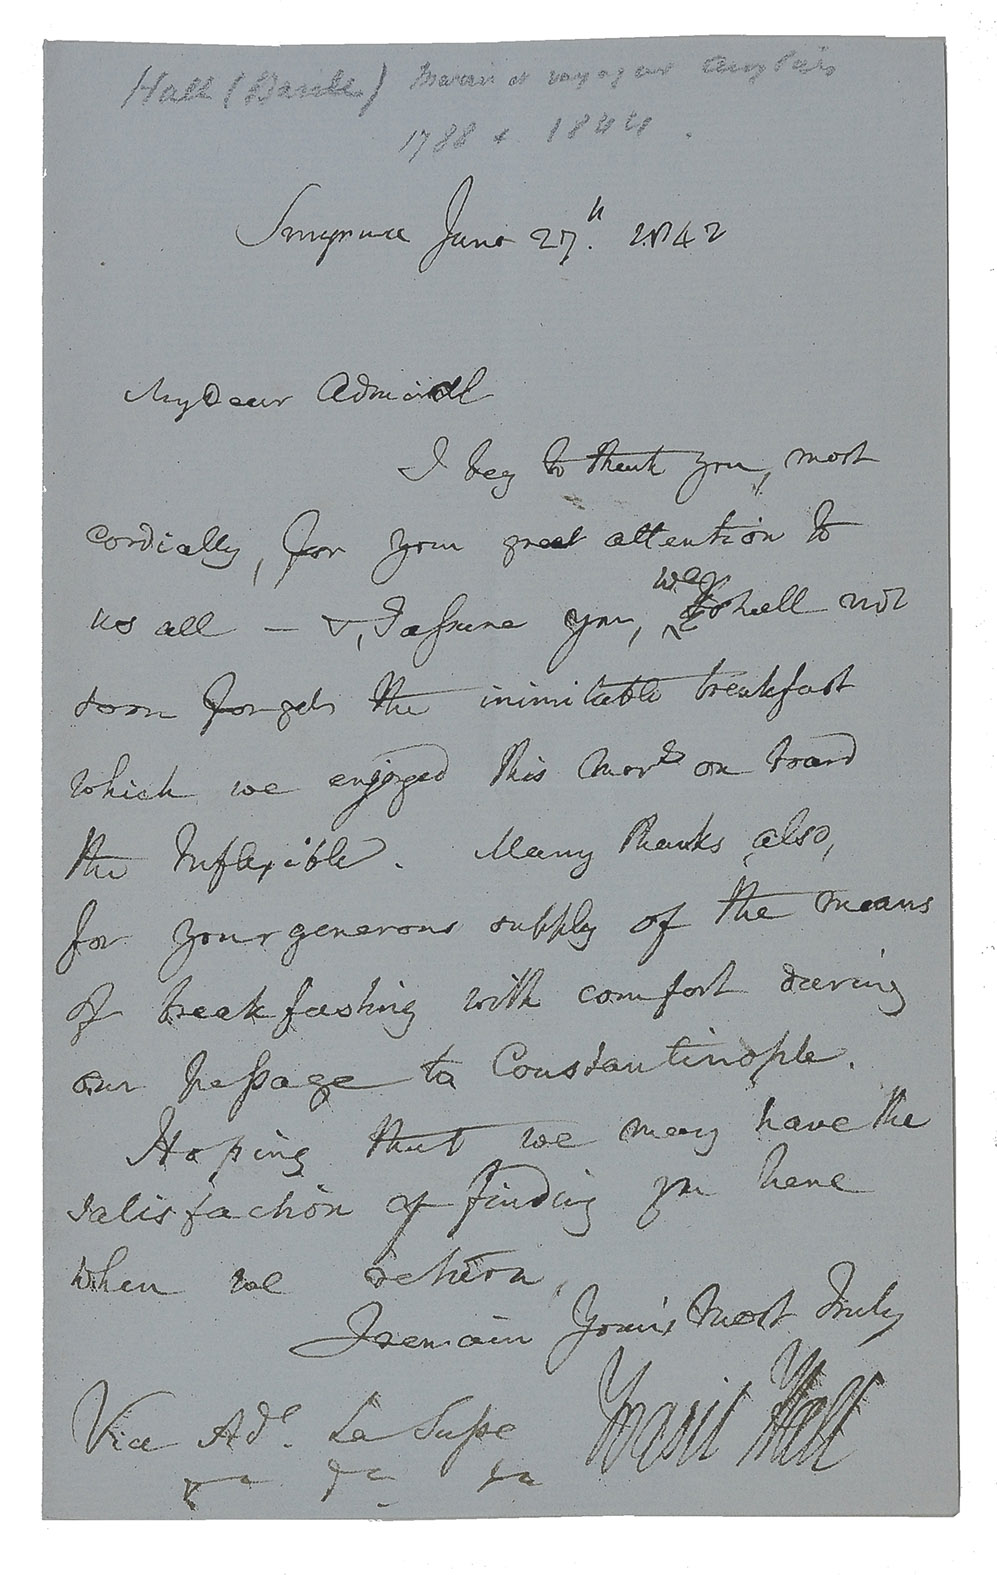 Hall (Basill) Marin et voyageur anglais
1788 + 1844.
Smyrna June 27.th 1842
My Dear Admiral
I beg to thank you, most
cordially, for your great attention to
us all — &, I assure you, we shall not
soon forget the inimitable breakfast
which we enjoyed this Morg on board
the Inflexible. Many thanks also,
for your generous supply of the means
of breakfasting with comfort during
our passage to Constantinople.
Hoping that we may have the
satisfaction of finding you here
when we return,
I remain Yours Most Truly
Basil Hall
Vice Adl. La Susse
&c &c &c